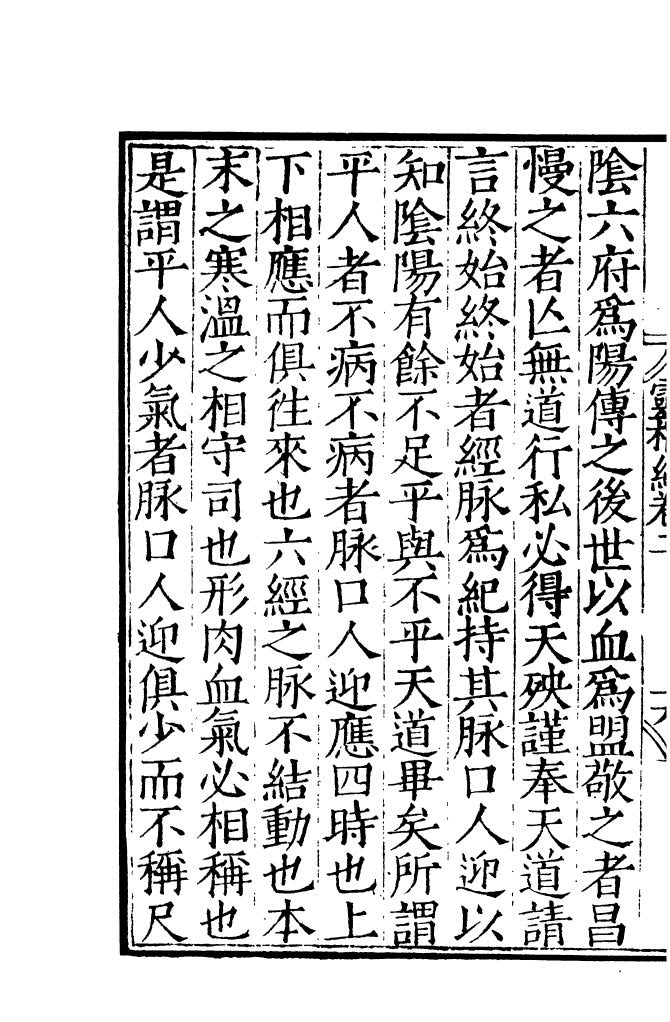 陰六府爲陽傳之後世以血爲盟敬之者昌
慢之者亾無道行私必得天殃謹奉天道請
言終始終始者經脉爲紀持其脉口人迎以
知陰陽有餘不足平與不平天道畢矣所謂
平人者不病不病者脉口人迎應四時也上
下相應而俱徃來也六經之脉不結動也本
末之寒溫之相守司也形肉血氣必相稱也
是謂平人少氣者脉口人迎俱少而不稱尺